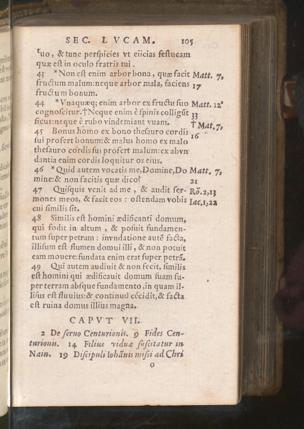 SEC. LVCAM. 105
tuo, & tunc perspicies vt eiicias festucam
quæ est in oculo fratris tui.
43 *Non est enim arbor bona, quæ facit Matt. 7,
fructum malum: neque arbor mala, faciens 17
fructum bonum.
44 *Vnaquæq; enim arbor ex fructu suo Matt. 12
cognoscitur. †Neque enim è spinis colligũt 33
ficus: neque è rubo vindemiant vuam. † Mat. 7,
45 Bonus homo ex bono thesauro cordis 16
sui profert bonum: & malus homo ex malo
thesauro cordis sui profert malum: ex abvn
dantia enim cordis loquitur os eius.
46 *Quid autem vocatis me, Domine, Do Matt. 7,
mine: & non facitis quæ dico? 21
47 Quisquis venit ad me, & audit ser- Rõ. 2,13
mones meos, & facit eos: ostendam vobis Iac. 1,22
cui similis sit.
48 Similis est homini ædificanti domum,
qui fodit in altum, & posuit fundamen-
tum super petram: inundatione autẽ facta,
illisum est flumen domui illi, & non potuit
eam mouere: fundata enim erat super petrã.
49 Qui autem audiuit & non fecit, similis
est homini qui ædificauit domum suam su-
per terram absque fundamento, in quam il-
lisus est fluuius: & continuò cécidit, & facta
est ruina domus illius magna.
CAPVT VII.
2 De seruo Centurionis. 9 Fides Cen-
turionis. 14 Filius viduæ suscitatur in
Nain. 19 Discipuli Iohãnis missi ad Chri
o